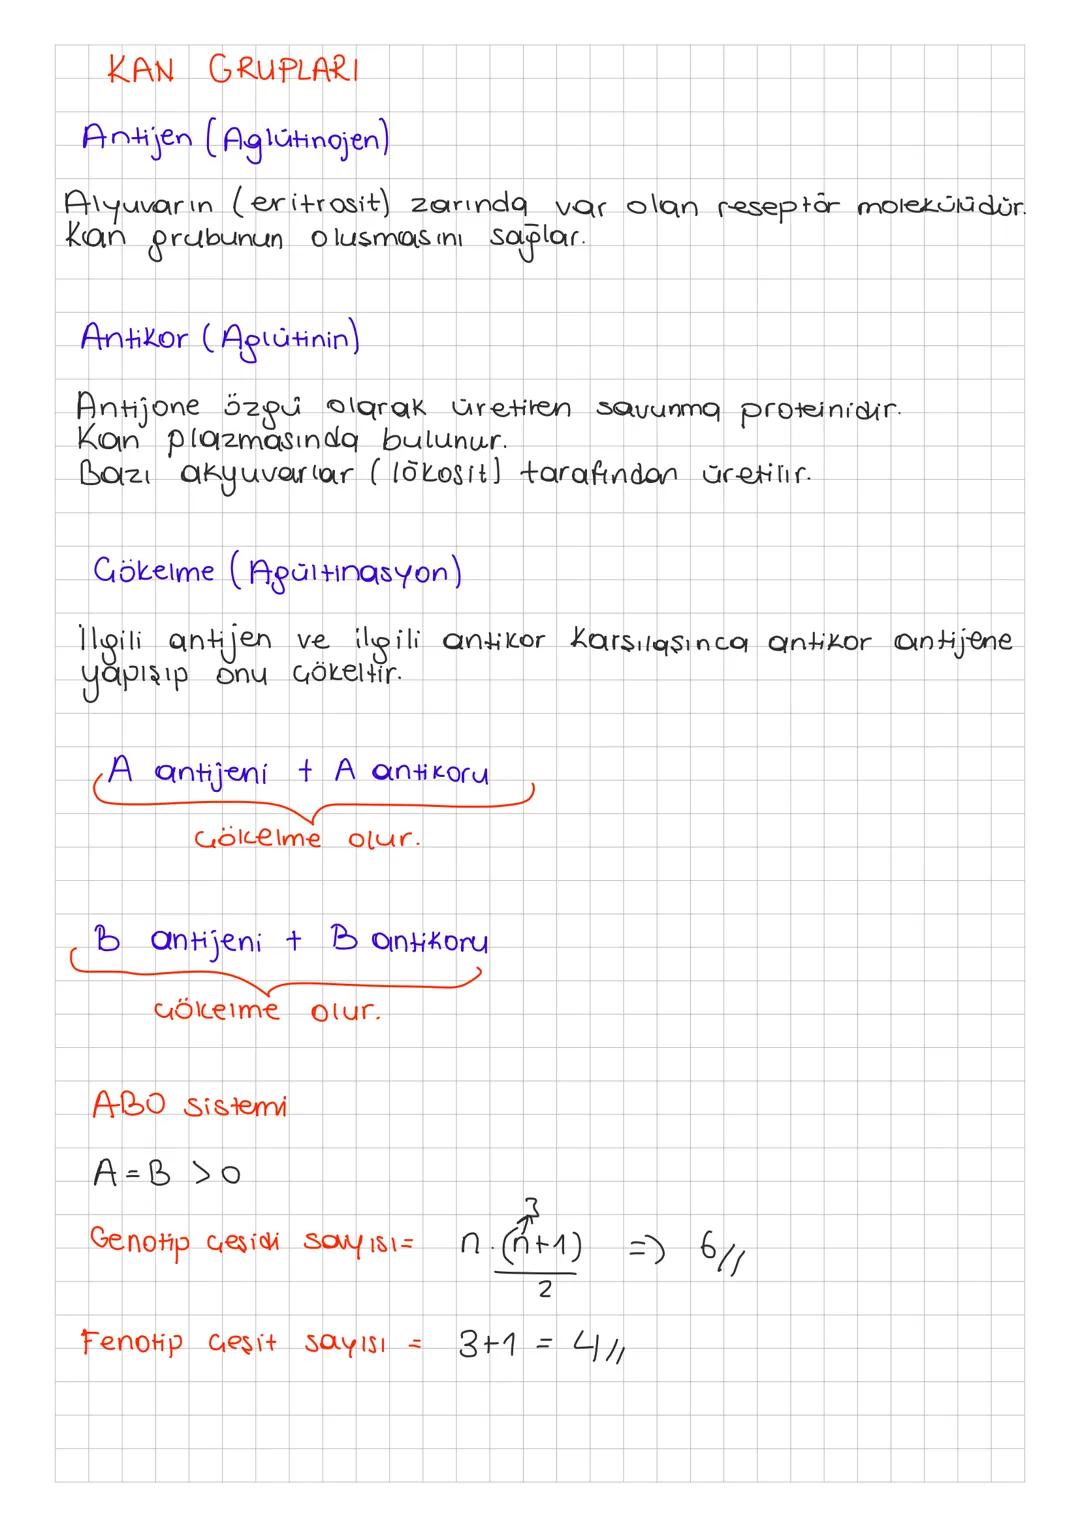 KAN GRUPLARI
Antijen (Aglütinojen)
Alyuvarın (eritrosit) zarında var olan reseptör molekülüdür.
Kan grubunun olusmasını sağlar.
Antikor (Aglütinin)
Antijone özgü olarak üretilen savunma proteinidir.
Kan plazmasında bulunur.
Bazı akyuvarlar (lökosit) tarafından üretilir.
Çökelme (Agültinasyon)
İlgili antijen ve ilgili antikor karşılaşınca antikor antijene
yapışıp onu çökeltir.
A antijeni + A antikoru
Çökelme olur.
B antijeni + B antikoru
Çökelme olur.
ABO sistemi
A=B >0
Genotip çeşidi sayısı= n.(n+1) => 6//
3
2
Fenotip çeşit sayısı = 3+1 = 4//